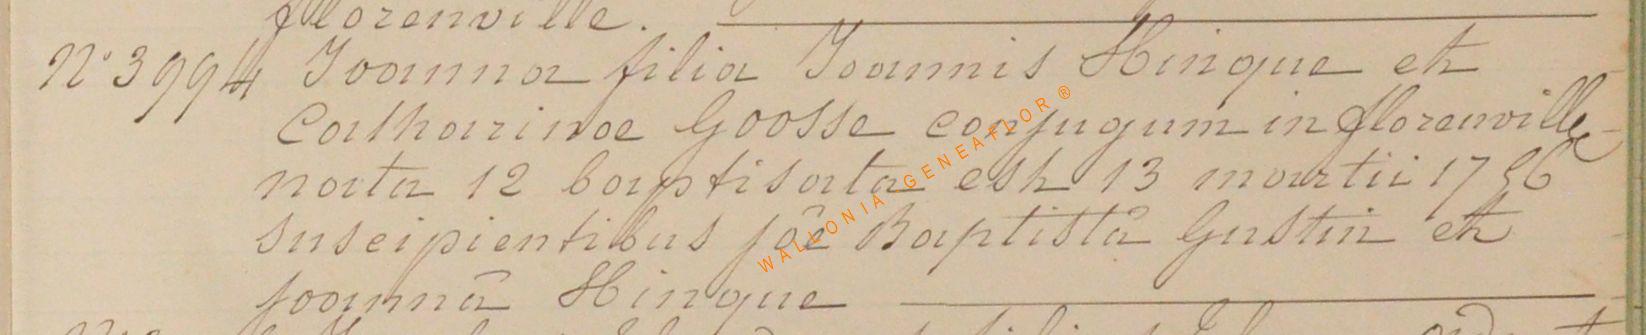 florenville.
N° 3994 Joanna filia Joannis Hinque et
Catharinae Goosse conjugum in florenville
nata 12 baptisata est 13 martii 1756
suscipientibus joê Baptistâ Gustin et
joannâ Hinque
WALLONIA GENEAFLOR ®